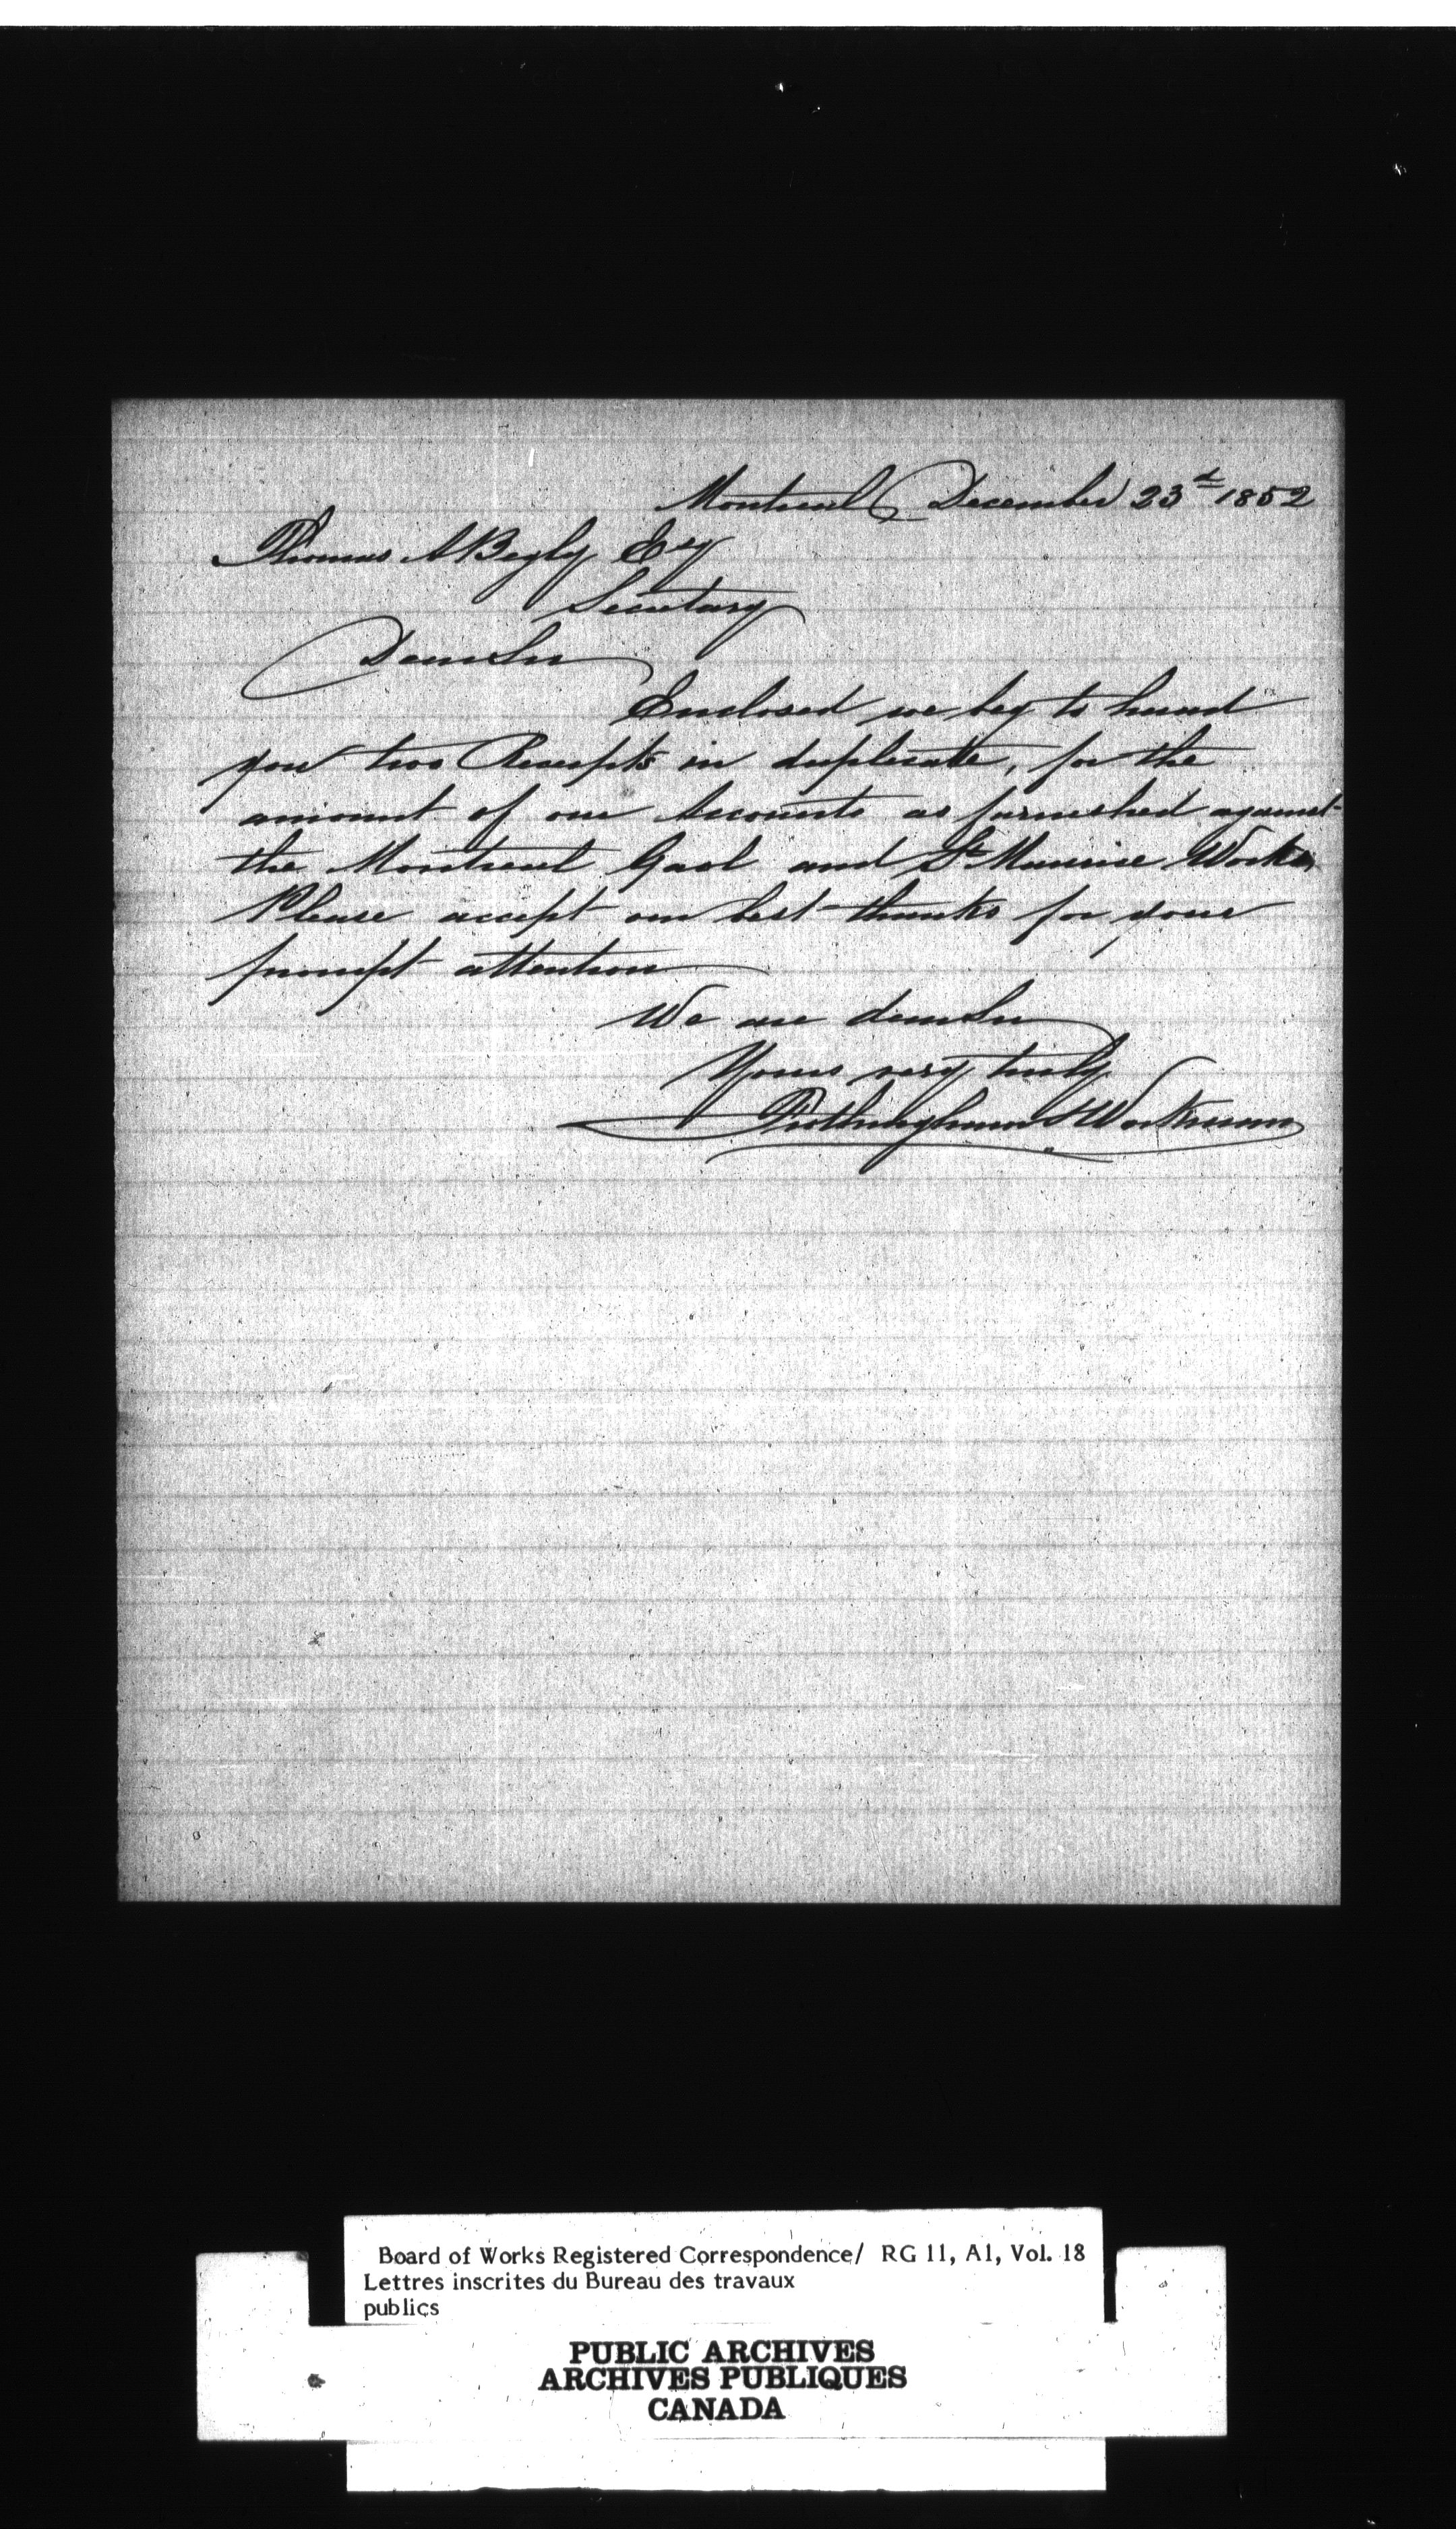 Montreal December 23d 1852
Thomas A Begly Esq
Secretary
Dear Sir
Enclosed we beg to hand
you two Receipts in duplicate, for the
amount of our Accounts as furnished against
the Montreal Gaol and St Maurice Works,
Please accept our best thanks for your
prompt attention
We are dear Sir
Yours very truly
Frothingham & Workman
Board of Works Registered Correspondence/ RG 11, A1, Vol. 18
Lettres inscrites du Bureau des travaux
publics
PUBLIC ARCHIVES
ARCHIVES PUBLIQUES
CANADA